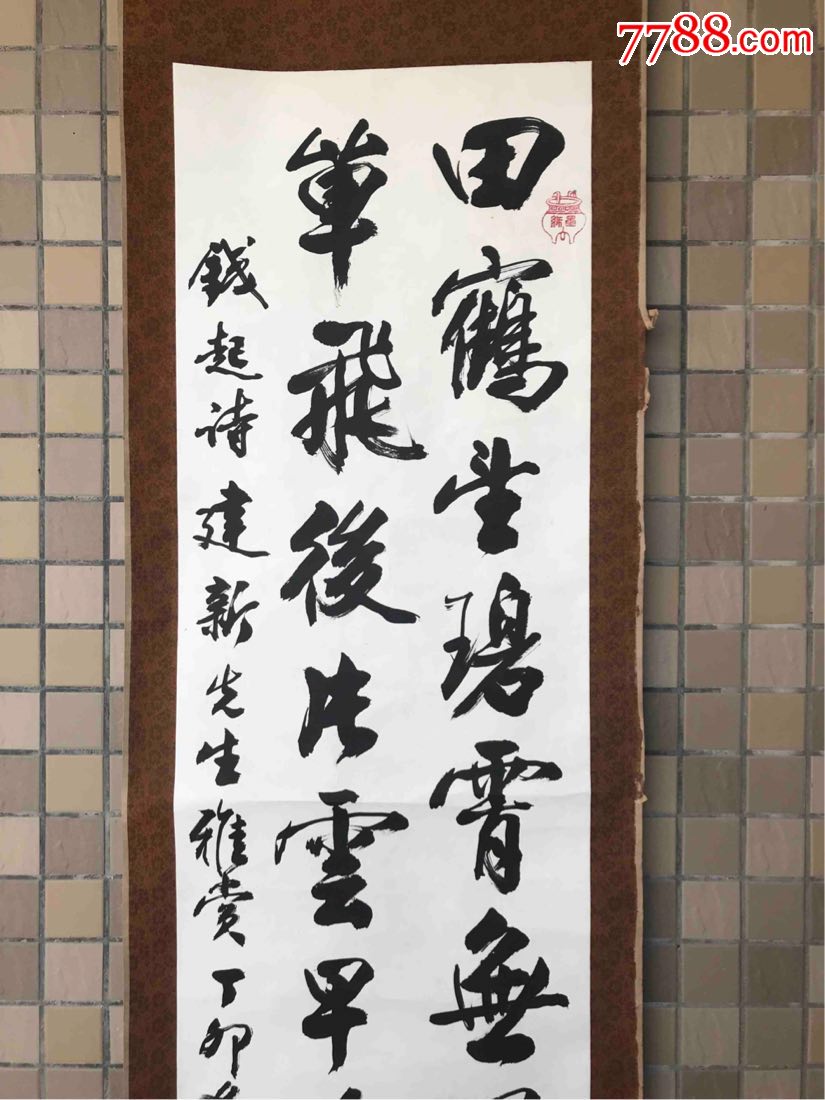 7788.com
田鶴望碧霄無
單飛後片雲早
錢起诗建新先生雅赏丁卯